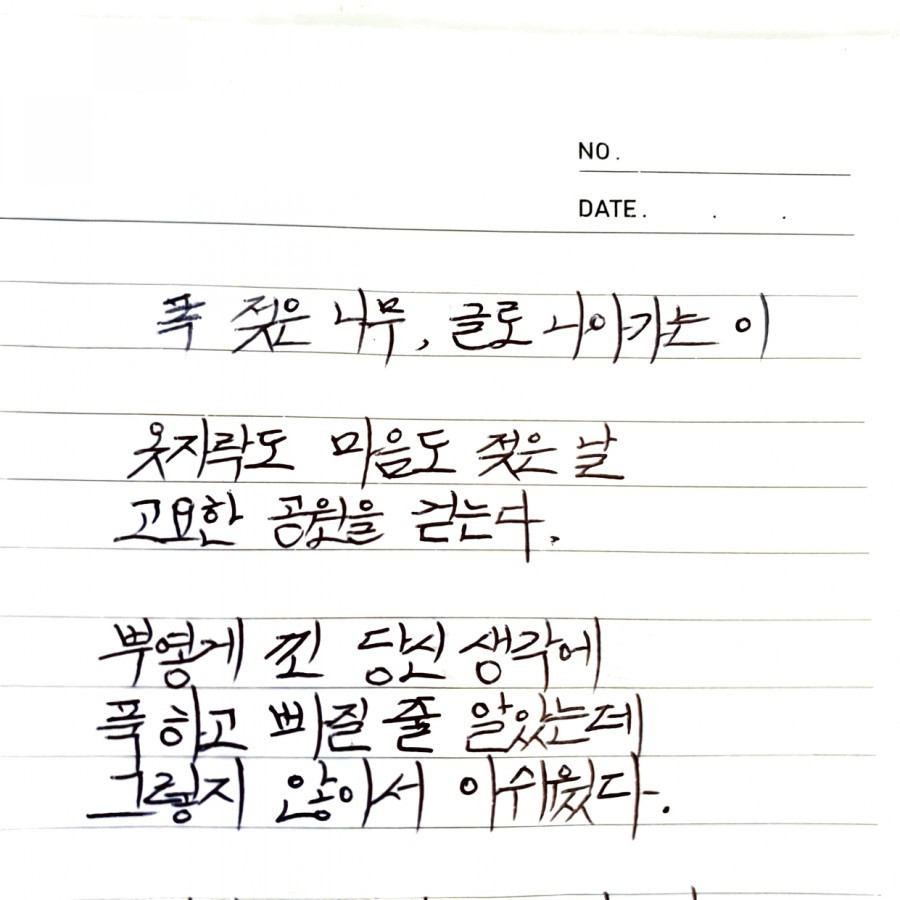 NO.
DATE. . .
폭 젖은 나무, 글로 나아가는 이
옷자락도 마음도 젖은 날
고요한 공원을 걷는다.
뿌옇게 낀 당신 생각에
푹 하고 빠질 줄 알았는데
그렇지 않아서 아쉬웠다.